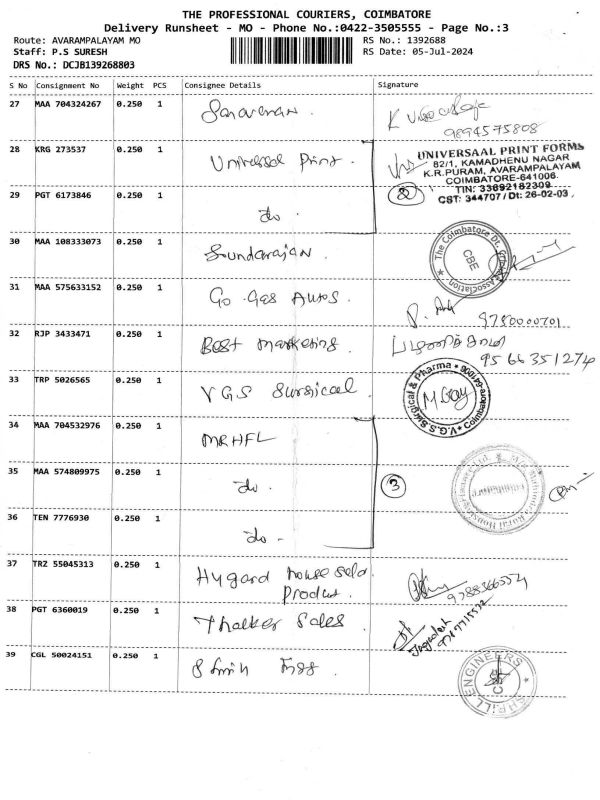 THE PROFESSIONAL COURIERS, COIMBATORE
Delivery Runsheet - MO - Phone No.:0422-3505555 - Page No.:3
Route: AVARAMPALAYAM MO
RS No.: 1392688
Staff: P.S SURESH
RS Date: 05-Jul-2024
DRS No.: DCJB139268803
S No Consignment No Weight PCS Consignee Details Signature
27 MAA 704324267 0.250 1 Saravanan.
9894575808
28 KRG 273537 0.250 1 Universal Print.
UNIVERSAAL PRINT FORMS
82/1, KAMADHENU NAGAR
K.R.PURAM, AVARAMPALAYAM
COIMBATORE-641006.
TIN: 33692182309
CST: 344707 / Dt: 26-02-03
29 PGT 6173846 0.250 1 do. 2
30 MAA 108333073 0.250 1 Sundarajan.
The Coimbatore Dt. Association
CBE
31 MAA 575633152 0.250 1 Go Gas Autos.
9750000701
32 RJP 3433471 0.250 1 Best marketing.
பழனிச்சாமி
9566351274
33 TRP 5026565 0.250 1 VGS Surgical.
V.G.S. Surgical & Pharma Coimbatore
34 MAA 704532976 0.250 1 MRHFL
35 MAA 574809975 0.250 1 do. 3
Rural Housing Finance Ltd.
Coimbatore
36 TEN 7776930 0.250 1 do.
37 TRZ 55045313 0.250 1 Hygard house hold.
Product.
38 PGT 6360019 0.250 1 Thakker Sales.
Jagadesh
39 CGL 50024151 0.250 1
ENGINEERS